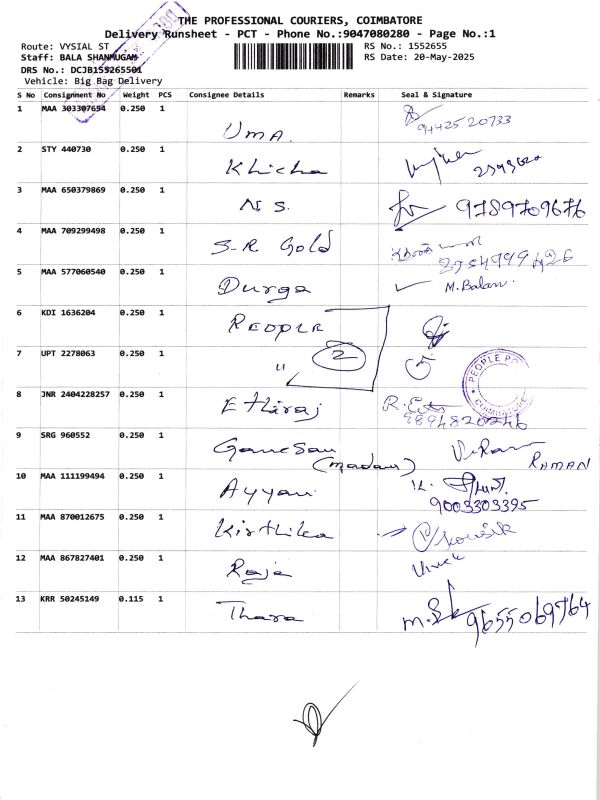 THE PROFESSIONAL COURIERS, COIMBATORE
Delivery Runsheet - PCT - Phone No.:9047080280 - Page No.:1
Route: VYSIAL ST RS No.: 1552655
Staff: BALA SHANMUGAM RS Date: 20-May-2025
DRS No.: DCJB155265501
Vehicle: Big Bag Delivery
S No Consignment No Weight PCS Consignee Details Remarks Seal & Signature
1 MAA 303307654 0.250 1 Uma. 9442520733
2 STY 440730 0.250 1 Khicha
3 MAA 650379869 0.250 1 N S. 9789709676
4 MAA 709299498 0.250 1 S-R Gold
5 MAA 577060540 0.250 1 Durga M. Balan.
6 KDI 1636204 0.250 1 PEOPLE
7 UPT 2278063 0.250 1 " 2 PEOPLE COIMBATORE
8 JNR 2404228257 0.250 1 Ethiraj 9894820246
9 SRG 960552 0.250 1 Ganesan (madan) RAMAN
10 MAA 111199494 0.250 1 Ayyan 9003303395
11 MAA 870012675 0.250 1 Kirthika
12 MAA 867827401 0.250 1 Raja Vivek
13 KRR 50245149 0.115 1 Thara 9655069764